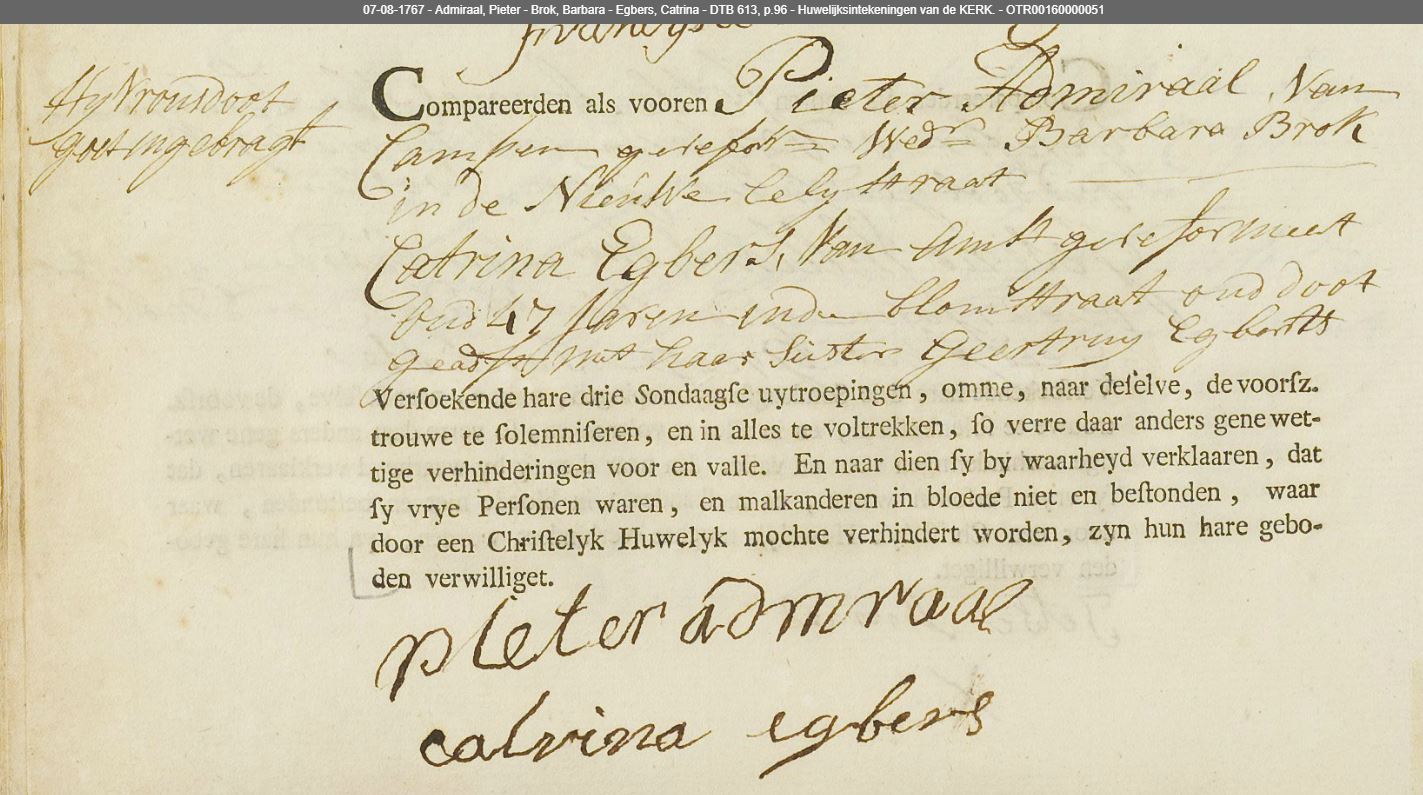 07-08-1767 - Admiraal, Pieter - Brok, Barbara - Egbers, Catrina - DTB 613, p.96 - Huwelijksintekeningen van de KERK. - OTR00160000051
Hy Vrouwsdoot
goet ingebragt
Compareerden als vooren Pieter Admiraal Van
Campen gereform Wedr Barbara Brok
in de Nieuwe lely straat
Catrina Egbers, Van Amst gereformeet
oud 47 Jaren inde blomstraat oud doot
geadst met haar Suster Geertruy Egberts
Versoekende hare drie Sondaagſe uytroepingen, omme, naar deſelve, de voorſz.
trouwe te ſolemniſeren, en in alles te voltrekken, ſo verre daar anders gene wet-
tige verhinderingen voor en valle. En naar dien ſy by waarheyd verklaaren, dat
ſy vrye Perſonen waren, en malkanderen in bloede niet en beſtonden, waar
door een Chriſtelyk Huwelyk mochte verhindert worden, zyn hun hare gebo-
den verwilliget.
pieter admraal
catrina egbers